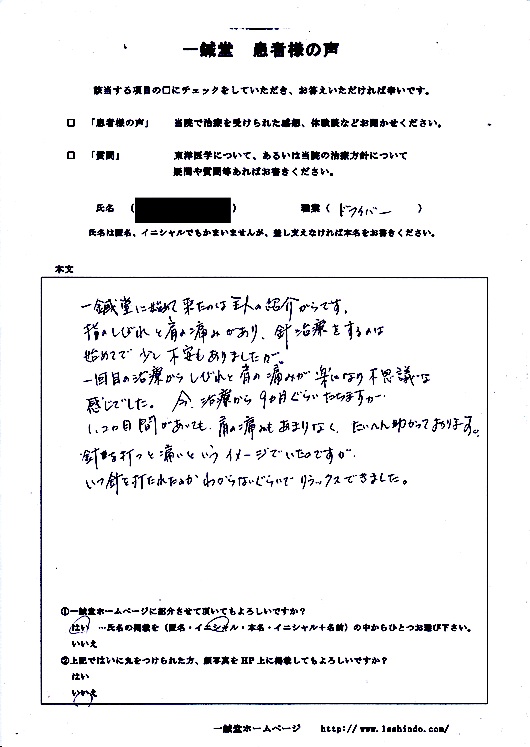 一鍼堂 患者様の声
該当する項目の□にチェックをしていただき、お答えいただければ幸いです。
□ 「患者様の声」 当院で治療を受けられた感想、体験談などお聞かせください。
□ 「質問」 東洋医学について、あるいは当院の治療方針について
疑問や質問等あればお書きください。
氏名 ( ) 職業 ( ドライバー )
氏名は匿名、イニシャルでもかまいませんが、差し支えなければ本名をお書きください。
本文
一鍼堂に始めて来たのは主人の紹介からです。
指のしびれと肩の痛みがあり、針治療をするのは
始めてで少し不安もありましたが。
一回目の治療からしびれと肩の痛みが楽になり不思議な
感じでした。今、治療から9カ月ぐらいたちますが
1、2カ月間があいても、肩の痛みもあまりなく、たいへん助かっております。
針を打つと痛いというイメージでいたのですが
いつ針を打たれたのかわからないぐらいでリラックスできました。
①一鍼堂ホームページに紹介させて頂いてもよろしいですか？
はい …氏名の掲載を（匿名・イニシャル・本名・イニシャル+名前）の中からひとつお選び下さい。
いいえ
②上記ではいに丸をつけられた方、顔写真をHP上に掲載してもよろしいですか？
はい
いいえ
一鍼堂ホームページ http://www.isshindo.com/